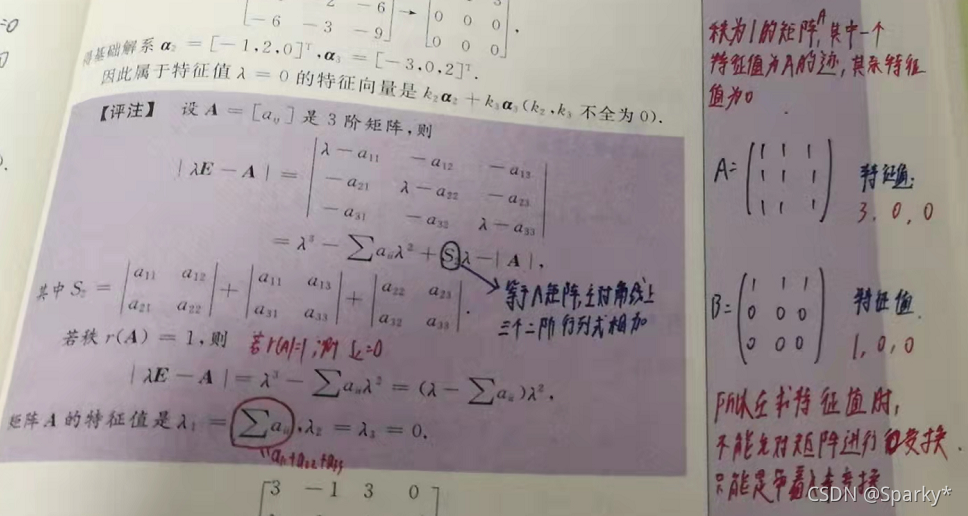 -6 -3 -9 → 0 0 0
0 0 0
得基础解系 α₂ = [-1,2,0]ᵀ, α₃ = [-3,0,2]ᵀ.
因此属于特征值 λ = 0 的特征向量是 k₂α₂ + k₃α₃ (k₂, k₃ 不全为 0).
【评注】 设 A = [aᵢⱼ] 是 3 阶矩阵, 则
| λE - A | = | λ - a₁₁ - a₁₂ - a₁₃ |
| - a₂₁ λ - a₂₂ - a₂₃ |
| - a₃₁ - a₃₂ λ - a₃₃ |
= λ³ - ∑aᵢᵢλ² + S₂λ - | A |,
其中 S₂ = | a₁₁ a₁₂ | + | a₁₁ a₁₃ | + | a₂₂ a₂₃ | .
| a₂₁ a₂₂ | | a₃₁ a₃₃ | | a₃₂ a₃₃ |
等于A矩阵,主对角线上
三个二阶行列式相加
若秩 r(A) = 1, 则
若r(A)=1,则S₂=0
| λE - A | = λ³ - ∑aᵢᵢλ² = (λ - ∑aᵢᵢ)λ²,
矩阵 A 的特征值是 λ₁ = ∑aᵢᵢ, λ₂ = λ₃ = 0.
a₁₁+a₂₂+a₃₃
3 -1 3 0
秩为1的矩阵A,其中一个
特征值为A的迹,其余特征
值为0
A= ( 1 1 1
1 1 1
1 1 1 )
特征值:
3, 0, 0
B= ( 1 1 1
0 0 0
0 0 0 )
特征值
1, 0, 0
所以在求特征值时,
不能先对矩阵进行变换.
只能是带着λ去变换
CSDN @Sparky*